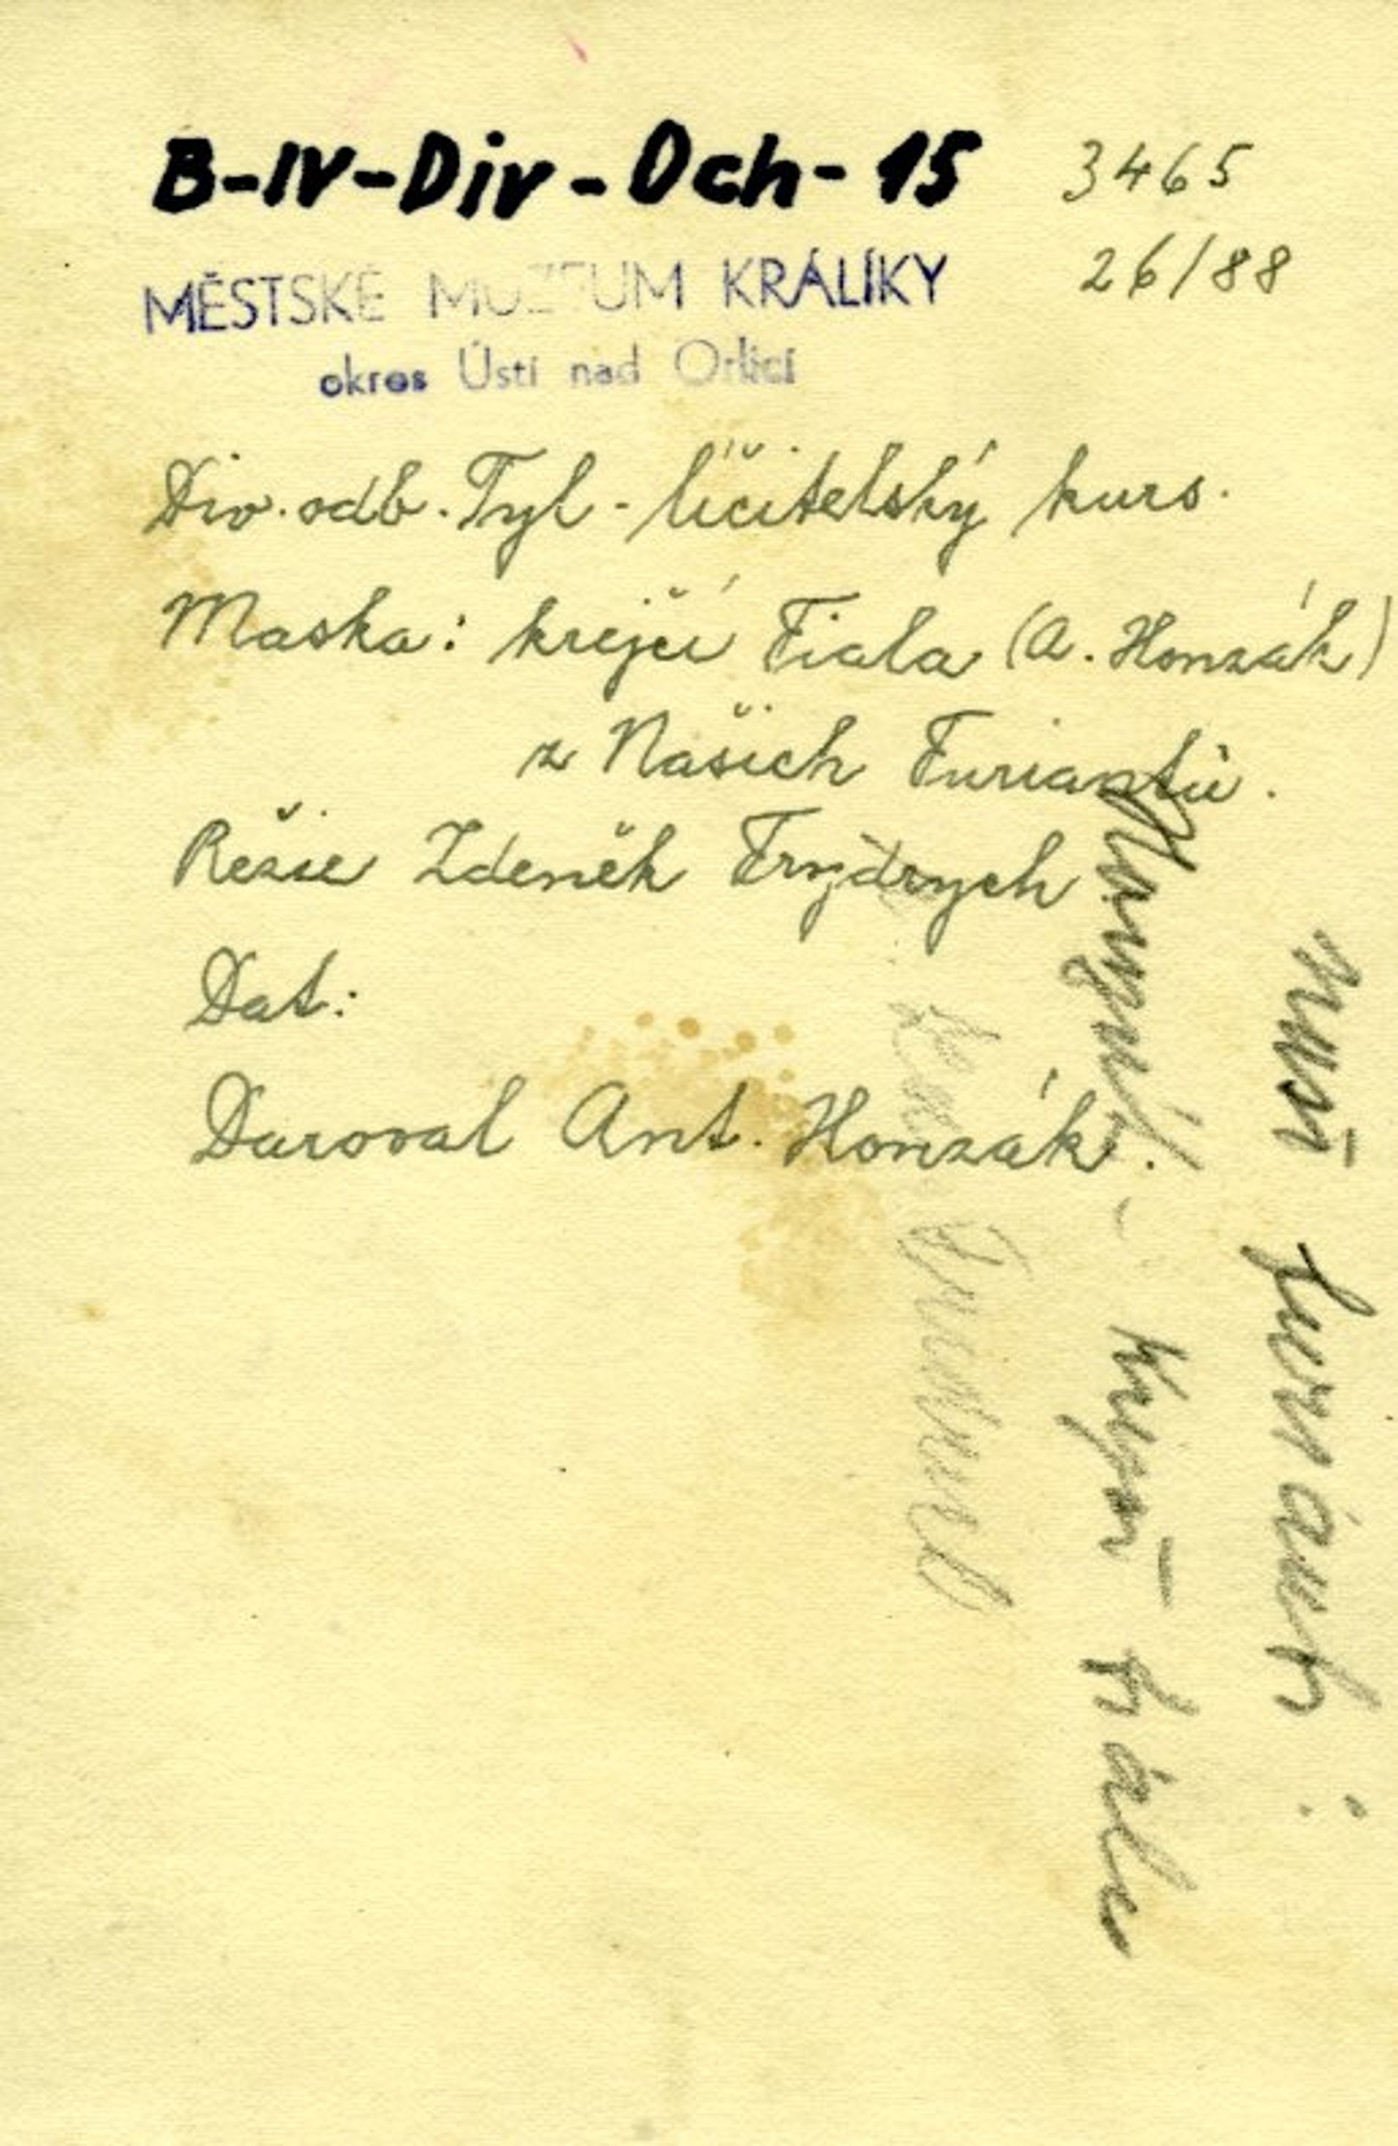 B-IV-Div-Och-15
3465
26/88
MĚSTSKÉ MUZEUM KRÁLÍKY
okres Ústí nad Orlicí
Div. odb. Tyl - líčitelský kurs.
Maska: krejčí Fiala (A. Honzák)
z Našich Furiantů.
Režie Zdeněk Frydrych
Dat:
Daroval Ant. Honzák.
Naši furianti:
Honzák - Krejčí